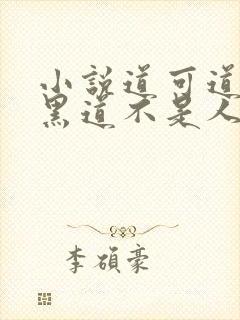 小說道可道
黑道不是人
李碩豪